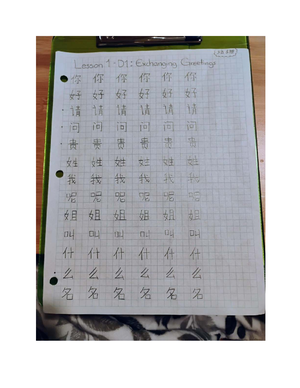 Lesson 1: D1: Exchanging Greetings
你 你 你 你 你 你
好 好 好 好 好 好
请 请 请 请 请 请
问 问 问 问 问 问
贵 贵 贵 贵 贵 贵
姓 姓 姓 姓 姓 姓
我 我 我 我 我 我
呢 呢 呢 呢 呢 呢
姐 姐 姐 姐 姐 姐
叫 叫 叫 叫 叫 叫
什 什 什 什 什 什
么 么 么 么 么 么
名 名 名 名 名 名